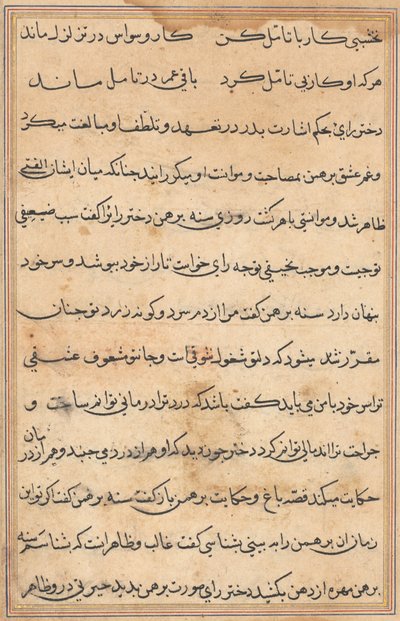 نخشبی کار با تأمّل کن کار وسواس در تزلزل ماند
هرکه او کار بی تامّل کرد باقی عمر در تامل ماند
دختر رای بحکم اشارت پدر در تعهد و تلطف او مبالغت میکرد
و غم عشق برهمن بمصاحبت و موانست او میگذرانید چنانکه میان ایشان الفتی
ظاهر شد و موانستی باهر گشت روزی سنه برهمن دختر رای را گفت سبب ضعیفی
تو چیست و موجب نحیفی تو چه رای خواست تا راز خود بپوشد و سر خود
پنهان دارد سنه برهمن گفت مرا از دم سرد و گونه زرد تو چنان
مقرّر شد میشود که دلی مشغول شوقی است و جانی مشعوف عشقی
تراسر خود با من می باید گفت باشد که درد ترا درمانی توانم ساخت و
جراحت ترا اندمالی توانم کرد دختر چون دید که او هم از درد می جنبد و هم از در مان
حکایت میکند قصه باغ و حکایت برهمن باز گفت سنه برهمن گفت اگر تو این
زمان آن برهمن را به بینی بشناسی گفت غالب و ظاهر انست که شناسم سنه
برهمن مهره از دهن بکشید دختر رای صورت برهمن بدید حیرتی در و ظاهر